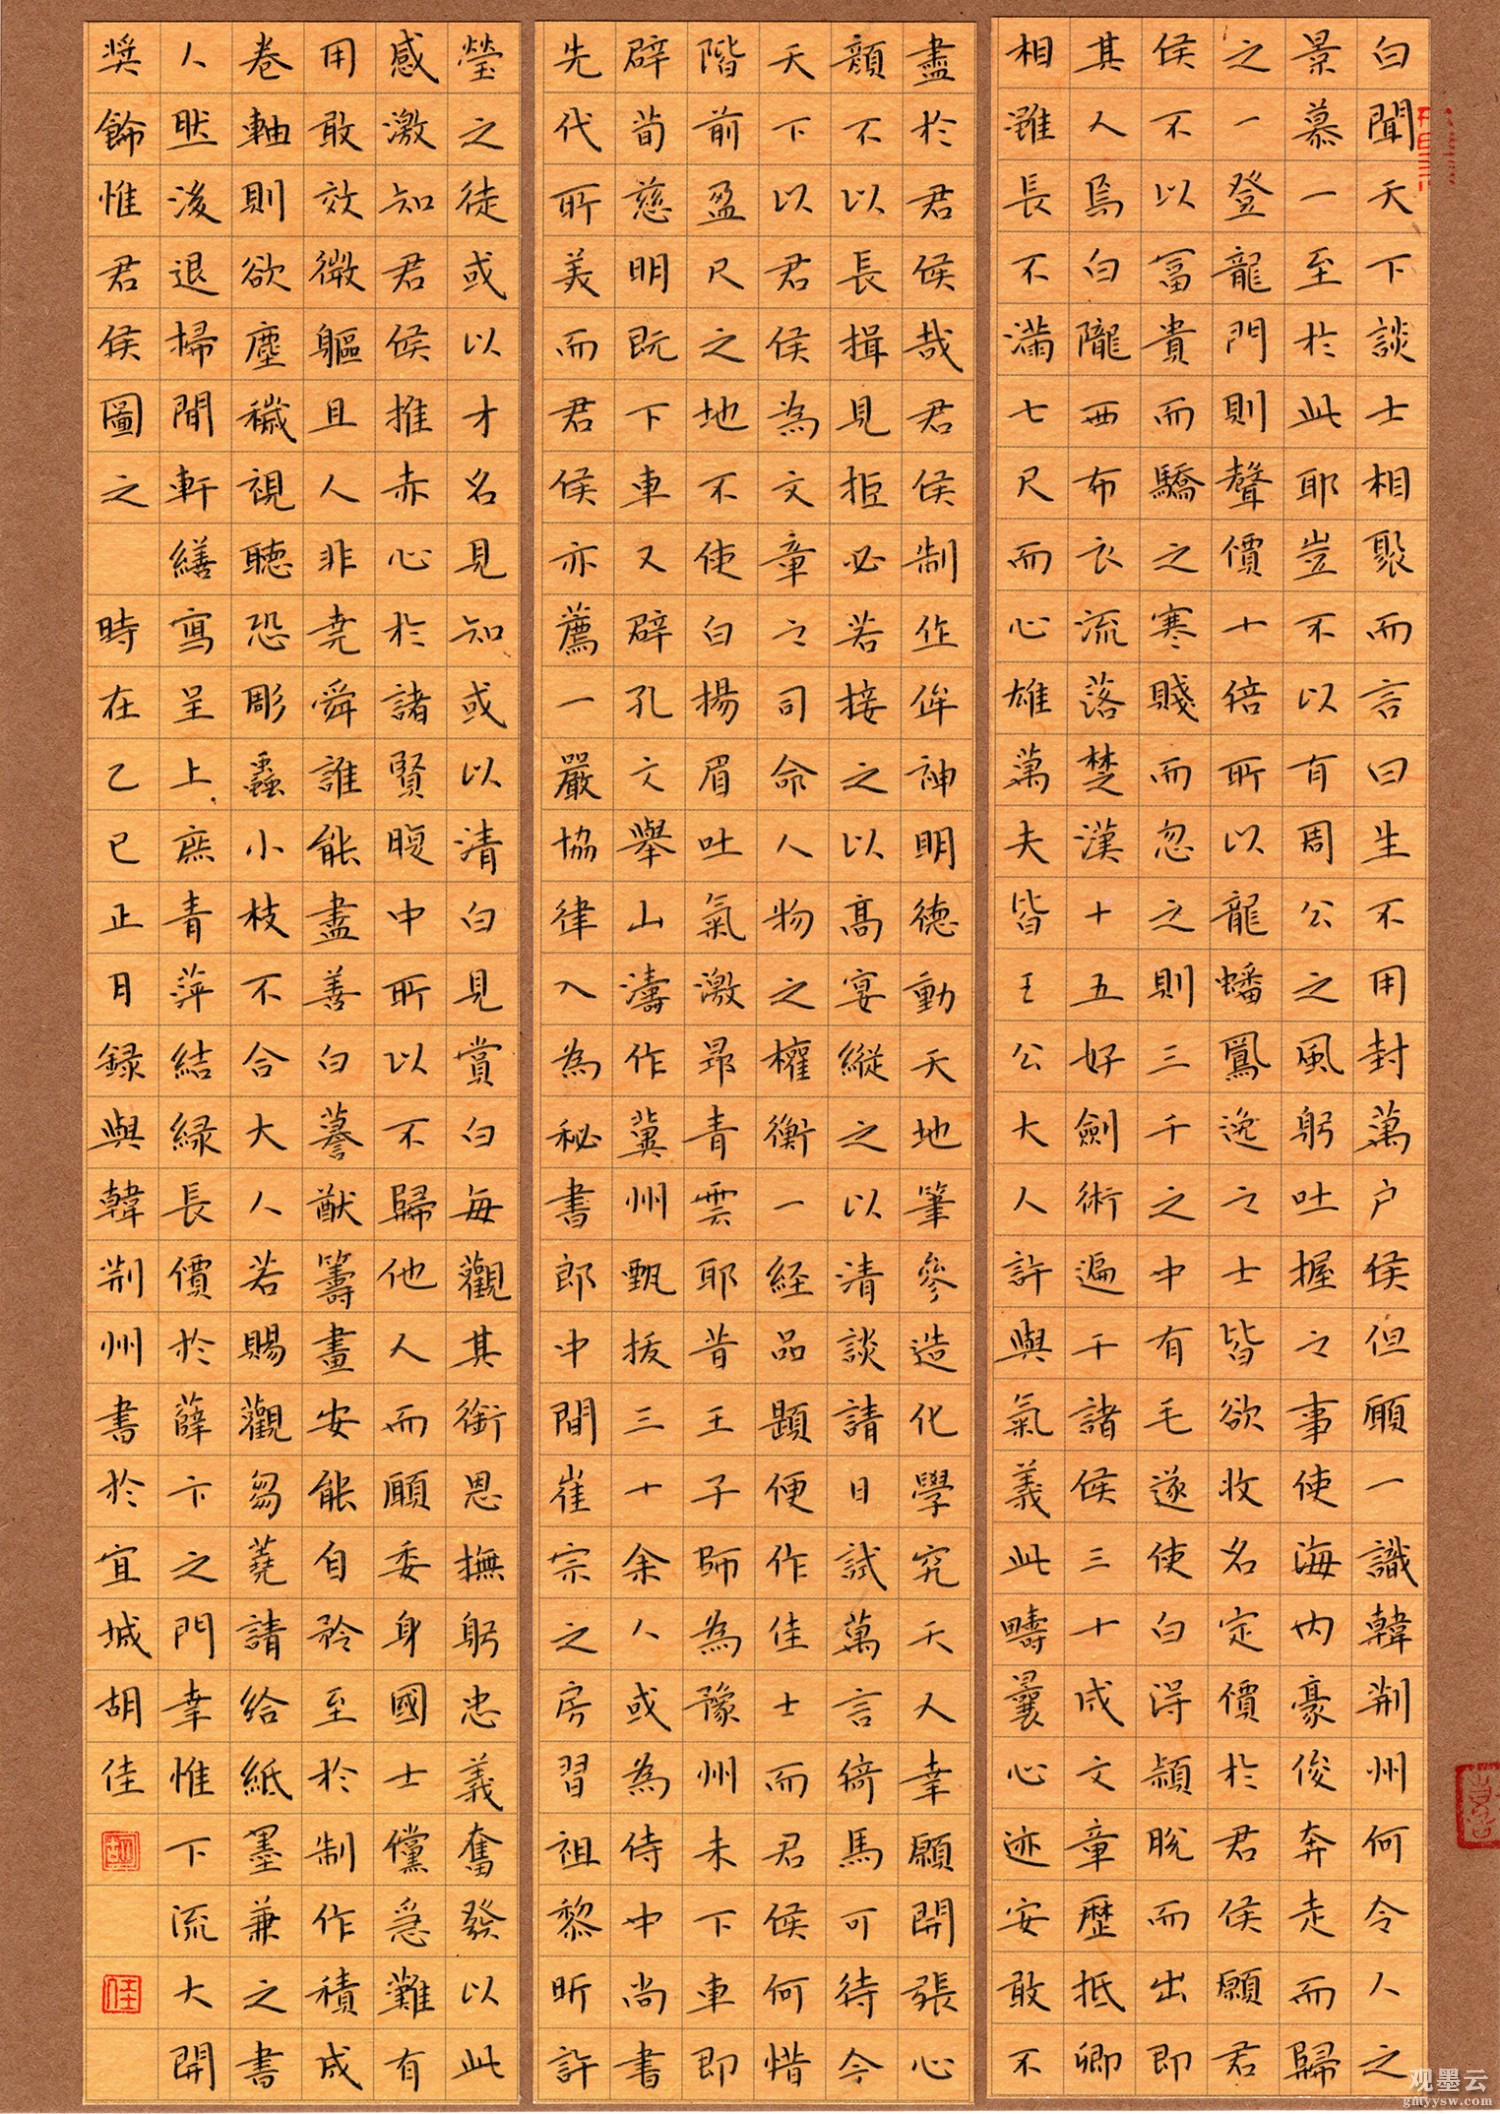 白聞天下談士相聚而言曰生不用封萬户侯但願一識韓荆州何令人之
景慕一至於此耶豈不以有周公之風躬吐握之事使海内豪俊奔走而歸
之一登龍門則聲價十倍所以龍蟠鳳逸之士皆欲收名定價於君侯願君
侯不以富貴而驕之寒賤而忽之則三千之中有毛遂使白得穎脱而出即
其人焉白隴西布衣流落楚漢十五好劍術遍干諸侯三十成文章歷抵卿
相雖長不滿七尺而心雄萬夫皆王公大人許與氣義此疇曩心迹安敢不
盡於君侯哉君侯制作侔神明德動天地筆參造化學究天人幸願開張心
顔不以長揖見拒必若接之以高宴縱之以清談請日試萬言倚馬可待今
天下以君侯為文章之司命人物之權衡一経品題便作佳士而君侯何惜
階前盈尺之地不使白揚眉吐氣激昂青雲耶昔王子師為豫州未下車即
辟荀慈明既下車又辟孔文舉山濤作冀州甄拔三十余人或為侍中尚書
先代所美而君侯亦薦一嚴協律入為秘書郎中間崔宗之房習祖黎昕許
瑩之徒或以才名見知或以清白見賞白每觀其銜恩撫躬忠義奮發以此
感激知君侯推赤心於諸賢腹中所以不歸他人而願委身國士儻急難有
用敢效微軀且人非堯舜誰能盡善白謩猷籌畫安能自矜至於制作積成
卷軸則欲塵穢視聽恐彫蟲小枝不合大人若賜觀芻蕘請給紙墨兼之書
人然後退掃閒軒繕寫呈上庶青萍結緑長價於薛卞之門幸惟下流大開
獎飾惟君侯圖之 時在乙巳正月録與韓荆州書於宜城胡佳
佳
观墨云
gmyysw.com